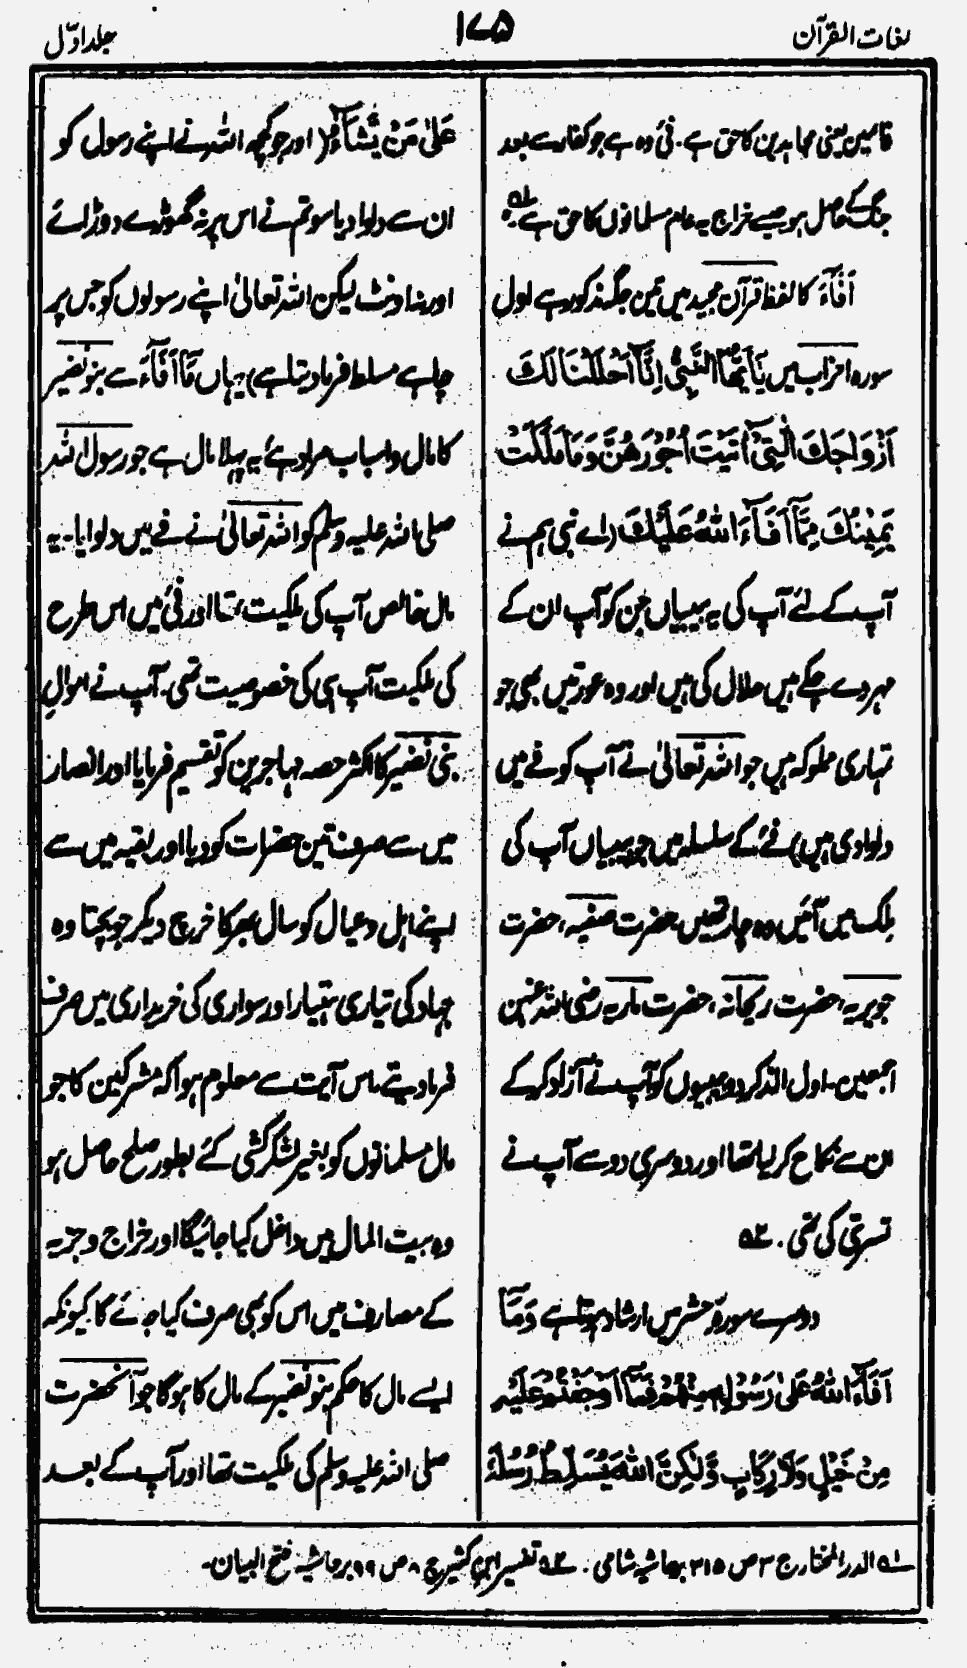 لغات القرآن
۱۷۵
جلد اوّل
غانمین یعنی مجاہدین کا حق ہے۔ فیٔ وہ ہے جو کفار سے بعد
جنگ کے حاصل ہو جیسے خراج یہ عام مسلمانوں کا حق ہے۔ ۵۱
أَفَآءَ کا لفظ قرآن مجید میں تین جگہ مذکور ہے اول
سورہ احزاب میں يٰٓاَيُّهَا النَّبِىُّ اِنَّآ اَحْلَلْنَا لَكَ
اَزْوَاجَكَ الّٰتِىْٓ اٰتَيْتَ اُجُوْرَهُنَّ وَمَا مَلَكَتْ
يَمِيْنُكَ مِمَّآ اَفَآءَ اللّٰهُ عَلَيْكَ (اے نبی ہم نے
آپ کے لئے آپ کی یہ بیبیاں جن کو آپ ان کے
مہر دے چکے ہیں حلال کی ہیں اور وہ عورتیں بھی جو
تمہاری مملوکہ ہیں جو اللہ تعالیٰ نے آپ کو فے میں
دلوادی ہیں) فئے کے سلسلہ میں جو بیبیاں آپ کی
ملک میں آئیں وہ چار تھیں حضرت صفیہ، حضرت
جویریہ، حضرت ریحانہ، حضرت ماریہ رضی اللہ عنہن
اجمعین۔ اول الذکر دو بیبیوں کو آپ نے آزاد کر کے
ان سے نکاح کر لیا تھا اور دوسری دو سے آپ نے
تسرّی کی تھی۔ ۵۲
دوسرے سورہ حشر میں ارشاد ہوتا ہے وَمَآ
اَفَآءَ اللّٰهُ عَلٰى رَسُوْلِهٖ مِنْهُمْ فَمَآ اَوْجَفْتُمْ عَلَيْهِ
مِنْ خَيْلٍ وَّلَا رِكَابٍ وَّلٰكِنَّ اللّٰهَ يُسَلِّطُ رُسُلَهٗ
عَلٰى مَنْ يَّشَآءُ (اور جو کچھ اللہ نے اپنے رسول کو
ان سے دلوا دیا سو تم نے اس پر نہ گھوڑے دوڑائے
اور نہ اونٹ لیکن اللہ تعالیٰ اپنے رسولوں کو جس پر
چاہے مسلط فرما دیتا ہے) یہاں مَآ اَفَآءَ سے بنو نضیر
کا مال و اسباب مراد ہے یہ پہلا مال ہے جو رسول اللہ
صلی اللہ علیہ وسلم کو اللہ تعالیٰ نے فے میں دلوایا۔ یہ
مال خالص آپ کی ملکیت تھا اور فیٔ میں اس طرح
کی ملکیت آپ ہی کی خصوصیت تھی۔ آپ نے اموالِ
بنی نضیر کا اکثر حصہ مہاجرین کو تقسیم فرمایا اور انصار
میں سے صرف تین حضرات کو دیا اور بقیہ میں سے
اپنے اہل و عیال کو سال بھر کا خرچ دیکر جو بچتا وہ
جہاد کی تیاری ہتھیار اور سواری کی خریداری میں صرف
فرما دیتے۔ اس آیت سے معلوم ہوا کہ مشرکین کا جو
مال مسلمانوں کو بغیر لشکر کشی کے بطور صلح حاصل ہو
وہ بیت المال میں داخل کیا جائیگا اور خراج و جزیہ
کے مصارف میں اس کو بھی صرف کیا جائے گا۔ کیونکہ
ایسے مال کا حکم بنو نضیر کے مال کا ہوگا جو آنحضرت
صلی اللہ علیہ وسلم کی ملکیت تھا اور آپ کے بعد
۵۱ الدر المختار ج ۳ ص ۳۱۵ برحاشیہ شامی۔ ۵۲ تفسیر ابن کثیر ج ۸ ص ۹۹ برحاشیہ فتح البیان۔